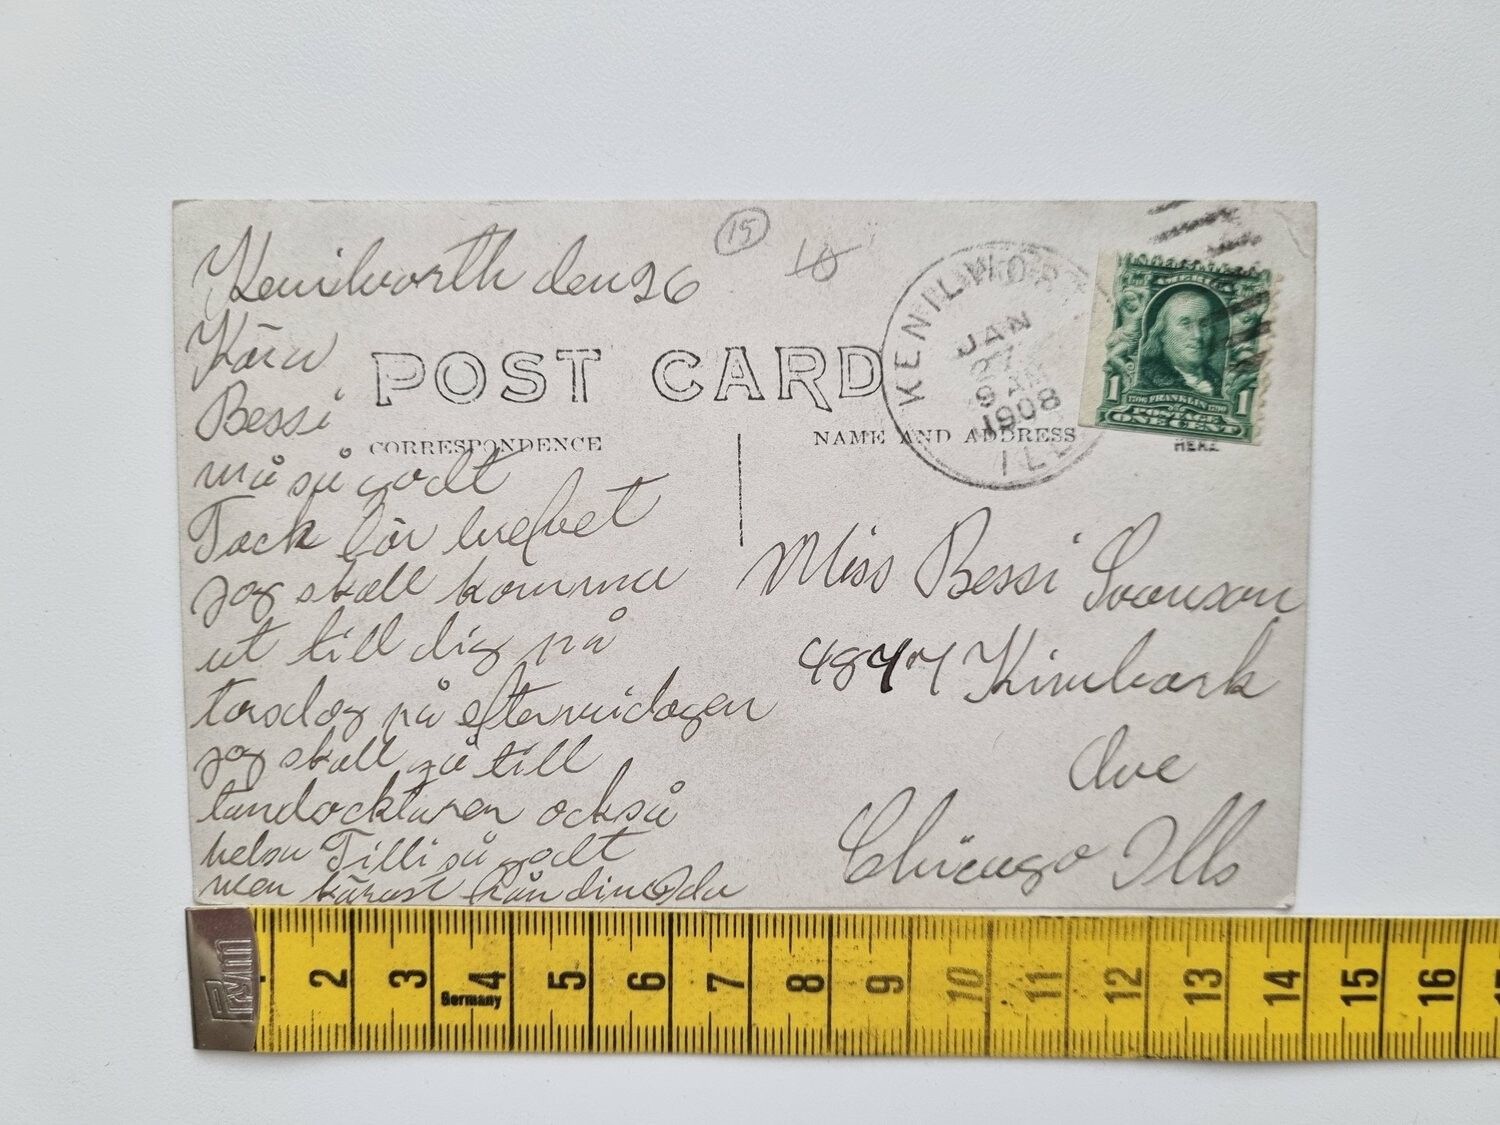 Kenilworth den 26
Kära
Bessi
må så godt
Tack för brefvet
jag skall komma
ut till dig på
torsdag på eftermidagen
jag skall gå till
tandocktaren också
helsa Tilli så godt
men kärast från din
15
10
POST CARD
CORRESPONDENCE
NAME AND ADDRESS
HERE
KENILWORTH
JAN
27
9 A
1908
ILL
1 1
1706 FRANKLIN 1790
POSTAGE
ONE CENT
Miss Bessi Svanson
4847 Kimbark
Ave
Chicago Ills
Prym
2 3 4 5 6 7 8 9 10 11 12 13 14 15 16
Germany